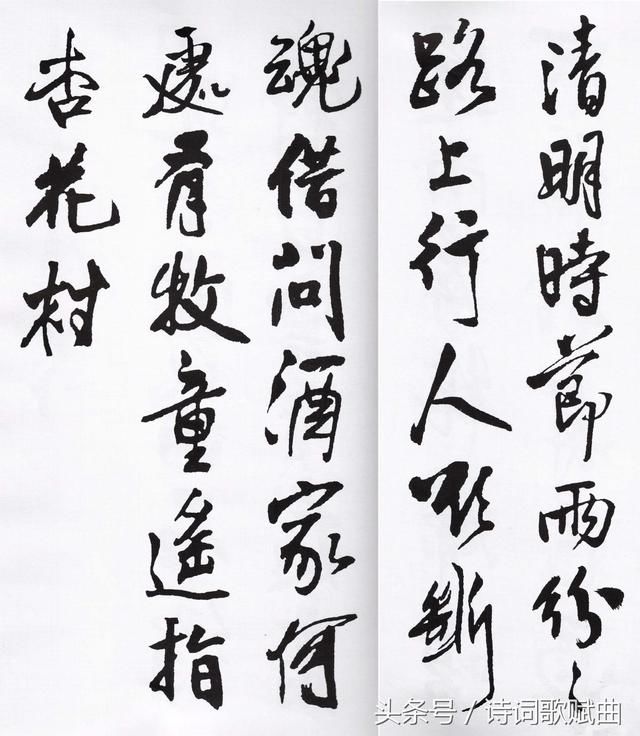 清明時節雨紛〻
路上行人欲斷
魂借問酒家何
處有牧童遙指
杏花村
头条号／诗词歌赋曲